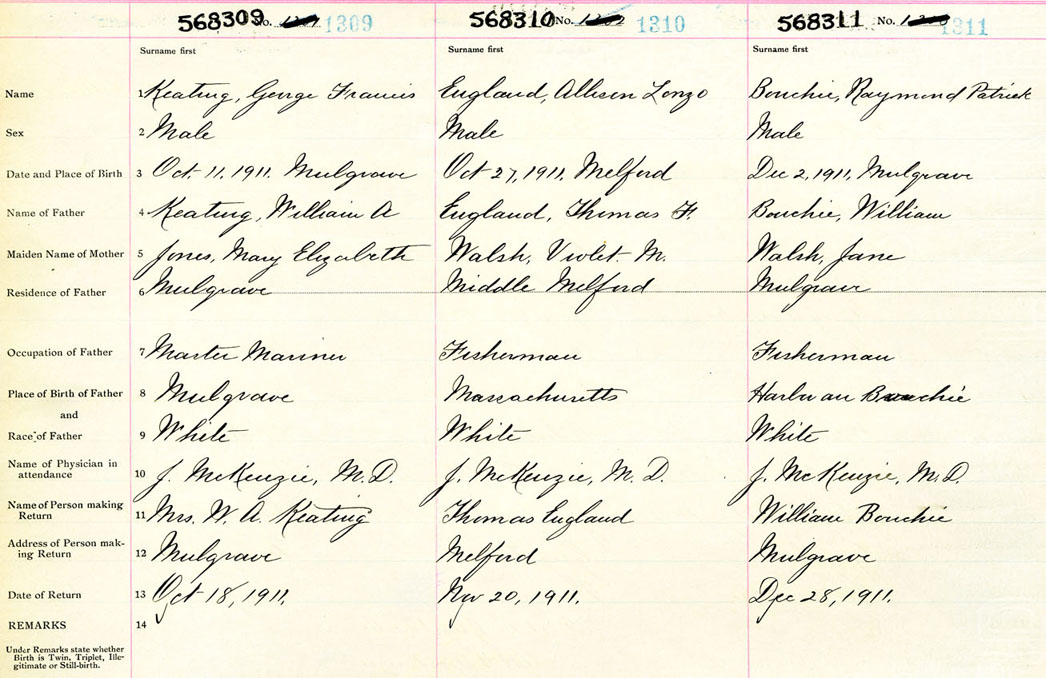 568309 No. 1309 568310 No. 1310 568311 No. 1311
Surname first Surname first Surname first
Name 1 Keating, George Francis England, Allison Lonzo Bouchie, Raymond Patrick
Sex 2 Male Male Male
Date and Place of Birth 3 Oct. 11, 1911. Mulgrave Oct 27, 1911. Melford Dec 2, 1911, Mulgrave
Name of Father 4 Keating, William A England, Thomas F. Bouchie, William
Maiden Name of Mother 5 Jones, Mary Elizabeth Walsh, Violet M. Walsh, Jane
Residence of Father 6 Mulgrave Middle Melford Mulgrave
Occupation of Father 7 Master Mariner Fisherman Fisherman
Place of Birth of Father 8 Mulgrave Massachusetts Harbor au Bouchie
and
Race of Father 9 White White White
Name of Physician in
attendance 10 J. McKenzie, M.D. J. McKenzie, M.D. J. McKenzie, M.D.
Name of Person making
Return 11 Mrs. W. A. Keating Thomas England William Bouchie
Address of Person mak-
ing Return 12 Mulgrave Melford Mulgrave
Date of Return 13 Oct 18, 1911. Nov 20, 1911. Dec 28, 1911.
REMARKS 14
Under Remarks state whether
Birth is Twin, Triplet, Ille-
gitimate or Still-birth.